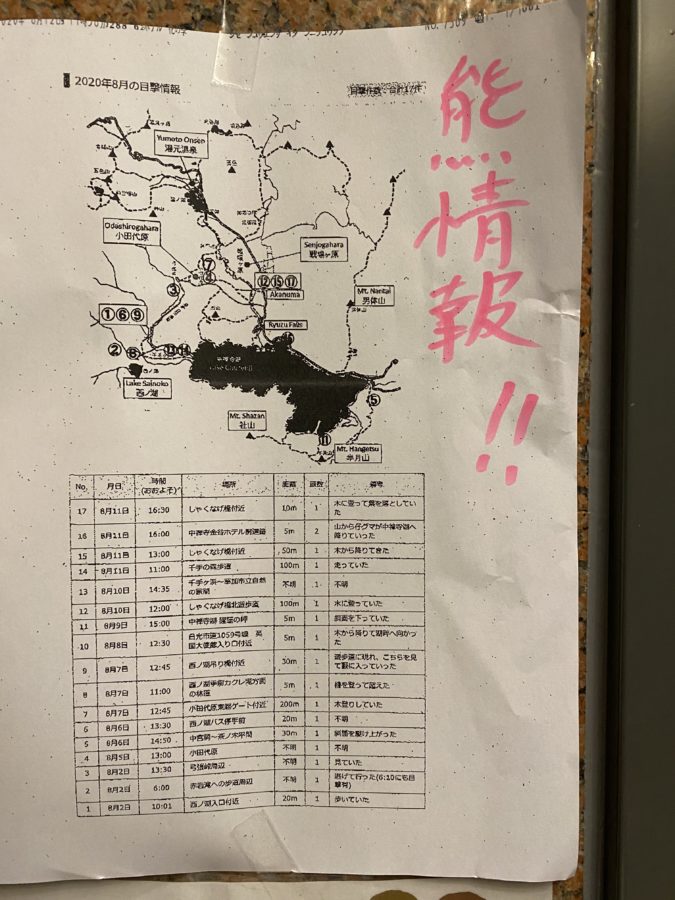 2020年8月の目撃情報
目撃件数：合計17件
熊情報!!
Yumoto Onsen
湯元温泉
Odashirogahara
小田代原
Senjogahara
戦場ヶ原
⑦
④
③
⑫⑮⑰
Akanuma
Mt. Nantai
男体山
①⑥⑨
Ryuzu Falls
②
⑧
⑬
⑭
Lake Sainoko
西ノ湖
⑤
Mt. Shazan
社山
⑪
Mt. Hangetsu
半月山
No. 月日 時間(おおよそ) 場所 距離 頭数 備考
17 8月11日 16:30 しゃくなげ橋付近 10m 1 木に登って葉を落としていた
16 8月11日 16:00 中禅寺金谷ホテル 5m 2 山から仔グマが中禅寺湖へ降りていった
15 8月11日 13:00 しゃくなげ橋付近 50m 1 木から降りてきた
14 8月11日 11:00 千手の森歩道 100m 1 走っていた
13 8月10日 14:35 千手ヶ浜～草加市立自然の家間 不明 1 不明
12 8月10日 12:00 しゃくなげ橋北遊歩道 100m 1 木に登っていた
11 8月9日 15:00 中禅寺湖 狸窪の岬 5m 1 斜面を下っていた
10 8月8日 12:30 日光市道1059号線 英国大使館入り口付近 5m 1 木から降りて湖畔へ向かった
9 8月7日 12:45 西ノ湖吊り橋付近 30m 1 遊歩道に現れ、こちらを見て藪に入っていった
8 8月7日 11:00 西ノ湖 カクレ滝方面の林道 5m 1 柵を登って越えた
7 8月7日 12:45 小田代原東部ゲート付近 200m 1 木登りしていた
6 8月6日 13:30 西ノ湖バス停手前 20m 1 不明
5 8月6日 14:50 中宮祠～茶ノ木平間 30m 1 斜面を駆け上がった
4 8月5日 13:00 小田代原 不明 1 不明
3 8月2日 13:30 弓張峠周辺 不明 1 見ていた
2 8月2日 6:00 赤岩滝への歩道周辺 不明 1 逃げて行った(6:10にも目撃有)
1 8月2日 10:01 西ノ湖入口付近 20m 1 歩いていた